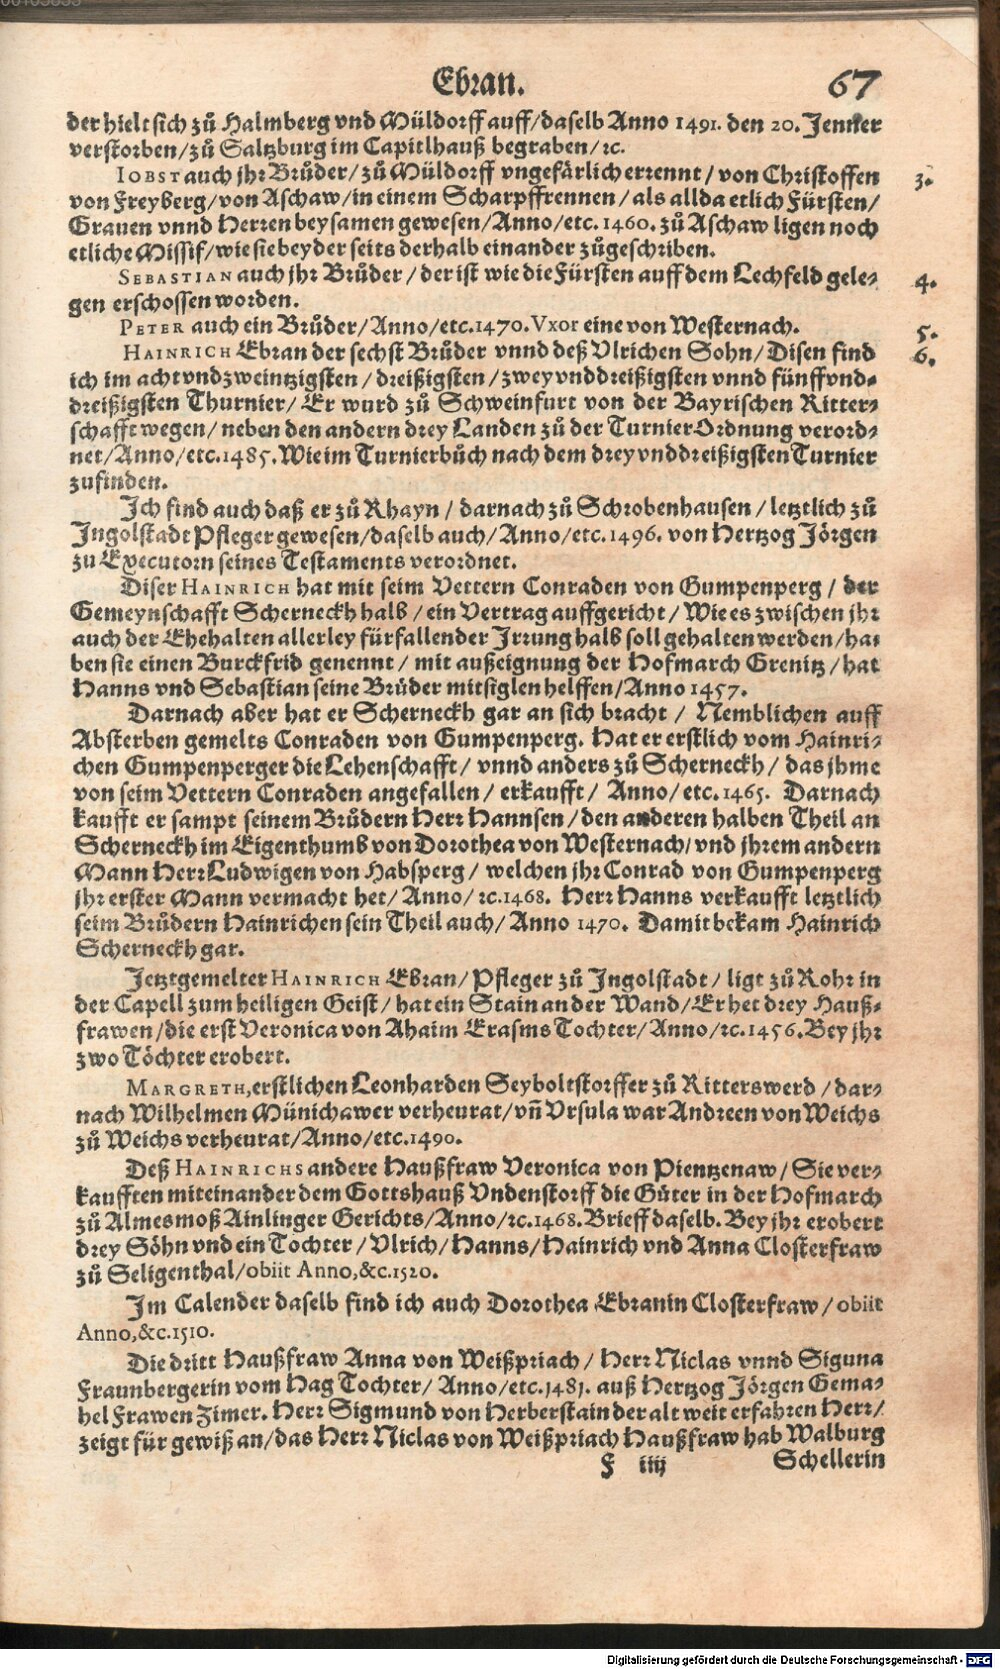 Ebran. 67
der hielt sich zů Halmberg vnd Müldorff auff/daselb Anno 1491. den 20. Jenner
verstorben/zů Saltzburg im Capitlhauß begraben/ꝛc.
IOBST auch jhr Brůder/zů Müldorff vngefärlich errennt/von Christoffen 3.
von Freyberg/von Aschaw/in einem Scharpffrennen/als allda etlich Fürsten/
Grauen vnnd Herren beysamen gewesen/Anno/etc. 1460. zů Aschaw ligen noch
etliche Missif/wie sie beyder seits derhalb einander zůgeschriben.
SEBASTIAN auch jhr Brůder/der ist wie die Fürsten auff dem Lechfeld gele- 4.
gen erschossen worden.
PETER auch ein Brůder/Anno/etc.1470. Vxor eine von Westernach. 5.
HAINRICH Ebran der sechst Brůder vnnd deß Vlrichen Sohn/Disen find 6.
ich im acht vnd zweintzigsten/dreißigsten/zwey vnd dreißigsten vnnd fünff vnd-
dreißigsten Thurnier/Er wurd zů Schweinfurt von der Bayrischen Ritter-
schafft wegen/neben den andern drey Landen zů der Turnier Ordnung verord-
net/Anno/etc.1485. Wie im Turnierbůch nach dem drey vnd dreißigsten Turnier
zufinden.
Ich find auch daß er zů Rhayn/darnach zů Schrobenhausen/letztlich zů
Ingolstadt Pfleger gewesen/daselb auch/Anno/etc.1496. von Hertzog Jörgen
zu Executorn seines Testaments verordnet.
Diser HAINRICH hat mit seim Vettern Conraden von Gumpenperg/der
Gemeynschafft Scherneckh halb/ein Vertrag auffgericht/Wie es zwischen jhr
auch der Ehehalten allerley fürfallender Irrung halb soll gehalten werden/ha-
ben sie einen Burckfrid genennt/mit außeignung der Hofmarch Grenitz/hat
Hanns vnd Sebastian seine Brüder mitsiglen helffen/Anno 1457.
Darnach aber hat er Scherneckh gar an sich bracht/Nemblichen auff
Absterben gemelts Conraden von Gumpenperg. Hat er erstlich vom Hainri-
chen Gumpenperger die Lehenschafft/vnnd anders zů Scherneckh/das jhme
von seim Vettern Conraden angefallen/erkaufft/Anno/etc. 1465. Darnach
kaufft er sampt seinem Brůdern Herr Hannsen/den anderen halben Theil an
Scherneckh im Eigenthumb von Dorothea von Westernach/vnd jhrem andern
Mann Herr Ludwigen von Habsperg/welchen jhr Conrad von Gumpenperg
jhr erster Mann vermacht het/Anno/ꝛc.1468. Herr Hanns verkaufft letztlich
seim Brůdern Hainrichen sein Theil auch/Anno 1470. Damit bekam Hainrich
Scherneckh gar.
Jetztgemelter HAINRICH Ebran/Pfleger zů Ingolstadt/ligt zů Rohr in
der Capell zum heiligen Geist/hat ein Stain an der Wand/Er het drey Hauß-
frawen/die erst Veronica von Ahaim Erasms Tochter/Anno/ꝛc.1456. Bey jhr
zwo Töchter erobert.
MARGRETH, erstlichen Leonharden Seyboltstorffer zů Ritterswerd/dar-
nach Wilhelmen Münichawer verheurat/vñ Vrsula war Andreen von Weichs
zů Weichs verheurat/Anno/etc.1490.
Deß HAINRICHS andere Haußfraw Veronica von Pientzenaw/Sie ver-
kaufften miteinander dem Gottshauß Vndenstorff die Güter in der Hofmarch
zů Almesmoß Ainlinger Gerichts/Anno/ꝛc.1468. Brieff daselb. Bey jhr erobert
drey Söhn vnd ein Tochter/Vlrich/Hanns/Hainrich vnd Anna Closterfraw
zů Seligenthal/obiit Anno,&c.1520.
Im Calender daselb find ich auch Dorothea Ebranin Closterfraw/obiit
Anno,&c.1510.
Die dritt Haußfraw Anna von Weißpriach/Herr Niclas vnnd Siguna
Fraunbergerin vom Hag Tochter/Anno/etc.1481. auß Hertzog Jörgen Gema-
hel Frawen Zimer. Herr Sigmund von Herberstain der alt weit erfahren Herr/
zeigt für gewiß an/das Herr Niclas von Weißpriach Haußfraw hab Walburg
F iiij Schellerin
Digitalisierung gefördert durch die Deutsche Forschungsgemeinschaft - DFG